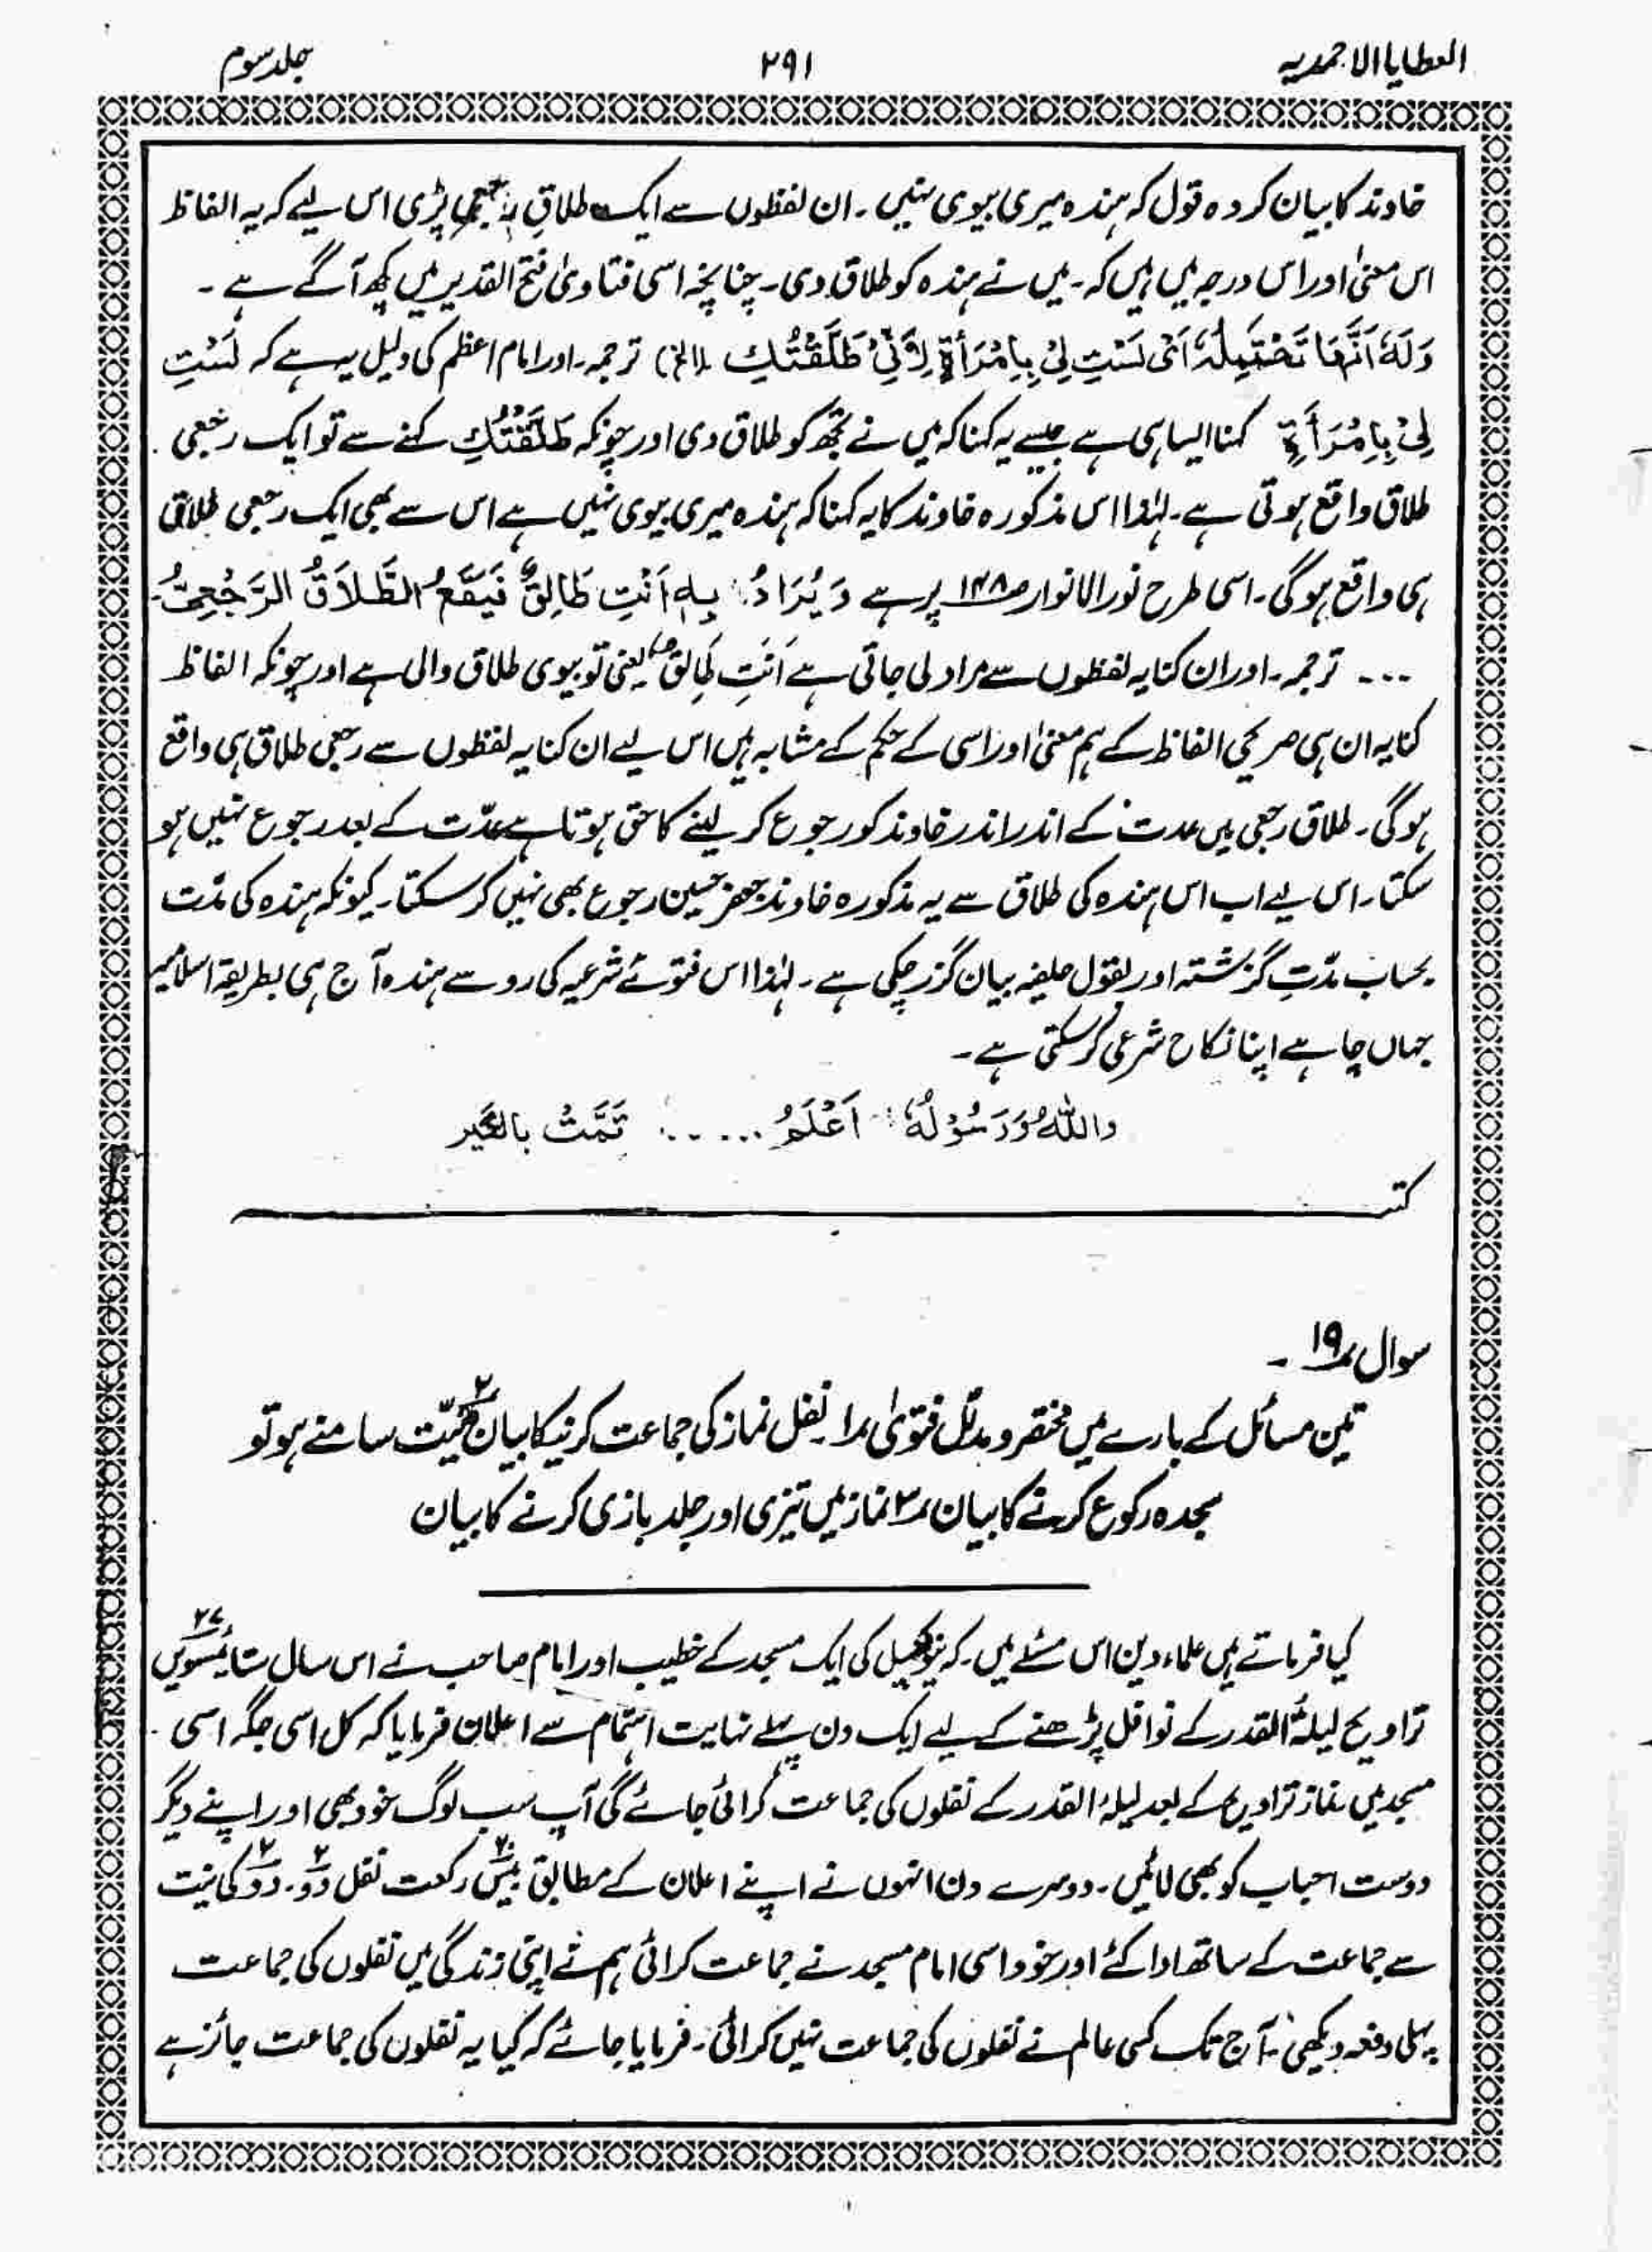 العطایا الاحمدیہ ۲۹۱ جلد سوم
خاوند کا بیان کردہ قول کہ ہندہ میری بیوی نہیں ۔ ان لفظوں سے ایک طلاقِ رجعی پڑی اس لیے کہ یہ الفاظ
اس معنیٰ اور اس درجہ میں ہیں کہ ۔ میں نے ہندہ کو طلاق دی ۔ چنانچہ اسی فتاویٰ فتح القدیر میں کچھ آگے ہے ۔
وَلَهٗ اَنَّهَا تَحْتَمِلُهٗ اَیْ لَسْتِ لِیْ بِاِمْرَأَۃٍ لِاَنِّیْ طَلَّقْتُكِ (الخ) ترجمہ ۔ اور امام اعظم کی دلیل یہ ہے کہ لَسْتِ
لِیْ بِاِمْرَأَۃٍ کہنا ایسا ہی ہے جیسے یہ کہنا کہ میں نے تجھ کو طلاق دی اور چونکہ طَلَّقْتُكِ کہنے سے تو ایک رجعی
طلاق واقع ہوتی ہے ۔ لہٰذا اس مذکورہ خاوند کا یہ کہنا کہ ہندہ میری بیوی نہیں ہے اس سے بھی ایک رجعی طلاق
ہی واقع ہوگی ۔ اسی طرح نور الانوار صـ۱۴۸ پر ہے وَیُرَادُ بِہٖ اَنْتِ طَالِقٌ فَیَقَعُ الطَّلَاقُ الرَّجْعِیُّ ۔
۔۔۔ ترجمہ ۔ اور ان کنایہ لفظوں سے مراد لی جاتی ہے اَنْتِ طَالِقٌ یعنی تو بیوی طلاق والی ہے اور چونکہ الفاظ
کنایہ ان ہی صریحی الفاظ کے ہم معنیٰ اور اسی کے حکم کے مشابہ ہیں اس لیے ان کنایہ لفظوں سے رجعی طلاق ہی واقع
ہوگی ۔ طلاق رجعی میں عدت کے اندر اندر خاوند کو رجوع کر لینے کا حق ہوتا ہے عدّت کے بعد رجوع نہیں ہو
سکتا ۔ اس لیے اب اس ہندہ کی طلاق سے یہ مذکورہ خاوند جعفر حسین رجوع بھی نہیں کر سکتا ۔ کیونکہ ہندہ کی عدّت
بحساب مدّتِ گزشتہ اور بقولِ حلیفہ بیان گزر چکی ہے ۔ لہٰذا اس فتوئے شرعیہ کی رو سے ہندہ آج ہی بطریقۂ اسلامیہ
جہاں چاہے اپنا نکاح شرعی کر سکتی ہے ۔
واللّٰہُ وَرَسُوْلُہٗ اَعْلَمُ ۔۔۔۔۔ تَمَّتْ بالخَیر
کتبـــہ
سوال ۱۹ ۔
تین مسائل کے بارے میں مختصر و مدلّل فتویٰ ۱ ۔ نفل نماز کی جماعت کرنیکا بیان ۲ میّت سامنے ہو تو
سجدہ رکوع کرنے کا بیان ۳ نماز میں تیزی اور جلد بازی کرنے کا بیان
کیا فرماتے ہیں علماء دین اس مسئلے میں ۔ کہ کی ایک مسجد کے خطیب اور امام صاحب نے اس سال ستائیسویں ۲۷
تراویح لیلۃُ القدر کے نوافل پڑھنے کے لیے ایک دن پہلے نہایت اہتمام سے اعلان فرمایا کہ کل اسی جگہ اسی
مسجد میں نماز تراویح کے بعد لیلۃُ القدر کے نفلوں کی جماعت کرائی جائے گی آپ سب لوگ خود بھی اور اپنے دیگر
دوست احباب کو بھی لائیں ۔ دوسرے دن انہوں نے اپنے اعلان کے مطابق بیس ۲۰ رکعت نفل دو ۲ ۔ دو ۲ کی نیت
سے جماعت کے ساتھ ادا کئے اور خود اسی امام مسجد نے جماعت کرائی ہم نے اپنی زندگی میں نفلوں کی جماعت
پہلی دفعہ دیکھی ۔ آج تک کسی عالم نے نفلوں کی جماعت نہیں کرائی ۔ فرمایا جائے کہ کیا یہ نفلوں کی جماعت جائز ہے